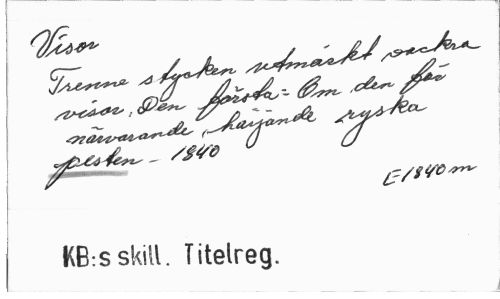 Visor
Trenne stycken utmärkt vackra
visor, Den första: Om den för
närvarande, härjande ryska
pesten - 1840
E1840m
KB:s skill. Titelreg.